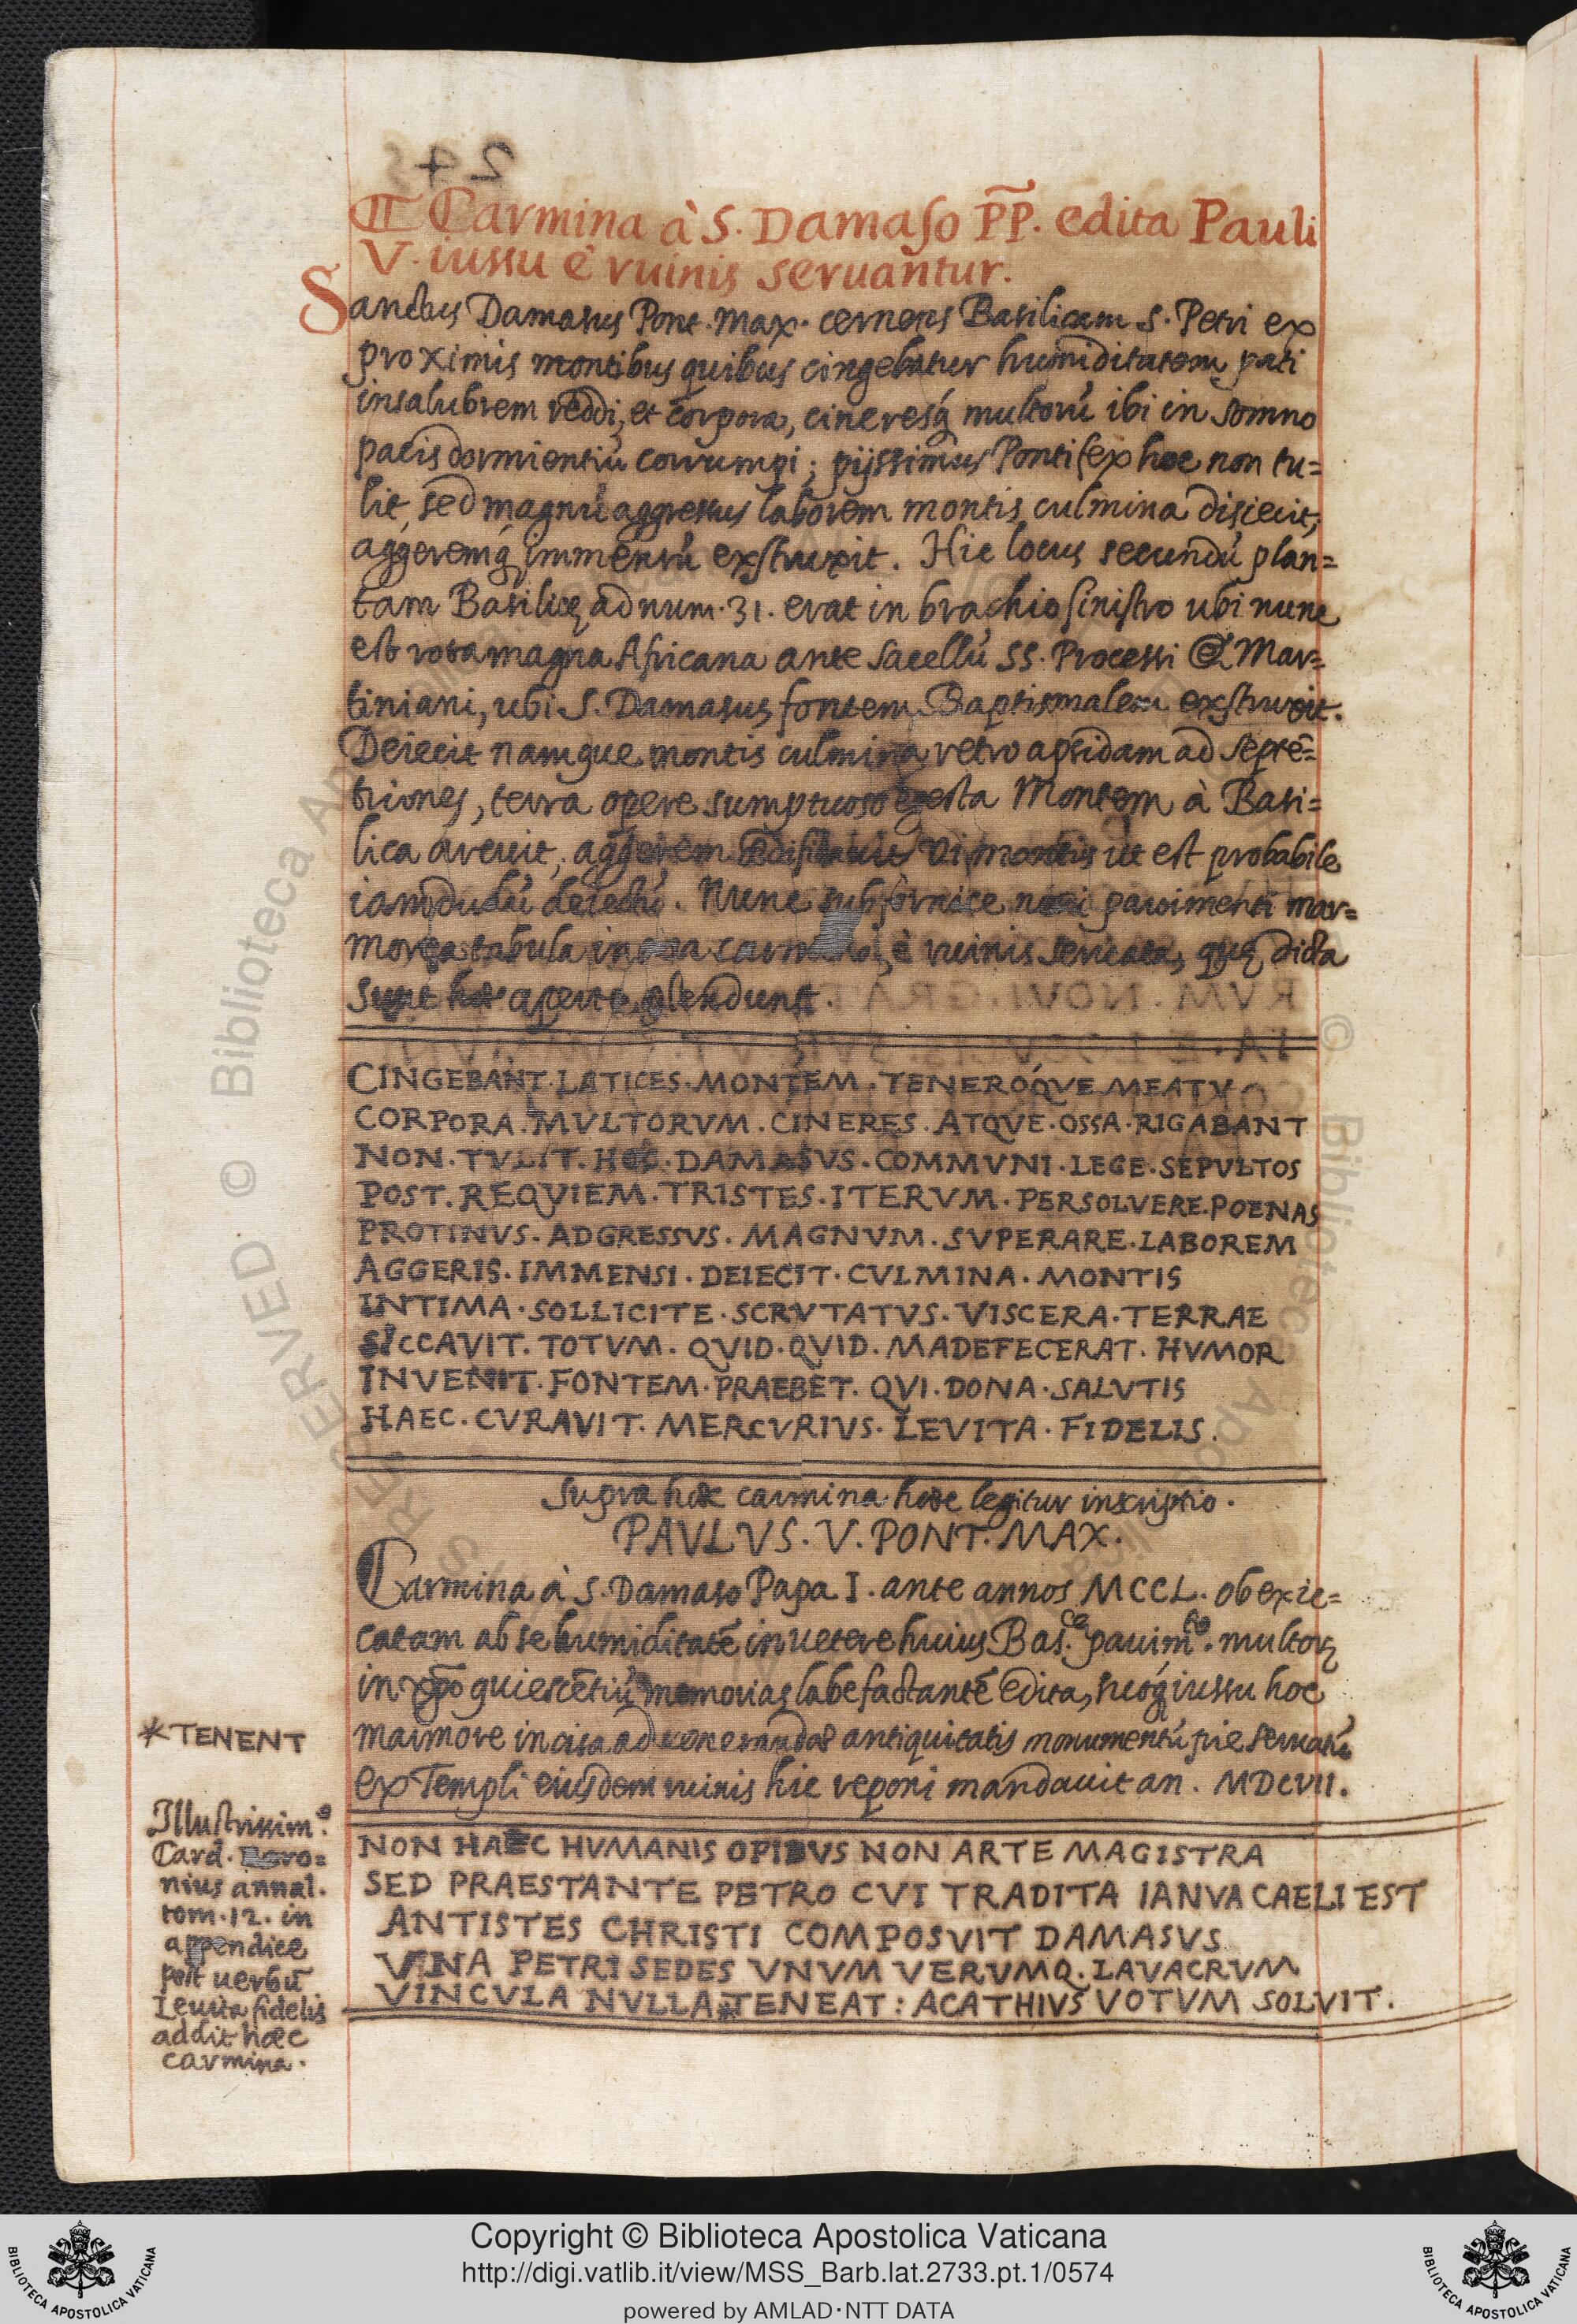 ¶ Carmina à S. Damaso PP̃. edita Pauli
V. iussu è ruinis seruantur.
Sanctus Damasus Pont. Max. cernens Basilicam S. Petri ex
proximis montibus quibus cingebatur humiditatem pati
insalubrem reddi, et corpora, cineresq́ multorũ ibi in somno
pacis dormientiũ corrumpi; pijssimus Pontifex hoc non tu=
lit, sed magnũ aggressus laborem montis culmina disiecit,
aggeremq́ immensũ exstruxit. Hic locus secundũ plan=
tam Basilicę ad num. 31. erat in brachio sinistro ubi nunc
est rota magna Africana ante sacellũ SS. Processi & Mar=
tiniani, ubi S. Damasus fontem Baptismalem exstruxit.
Deiecit namque montis culmina retro apsidam ad septẽ=
triones, terra opere sumptuoso egesta Montem à Basi=
lica arcuit, aggerem ut est probabile
iamdudũ deiectũ. Nunc sub fornice noui pauimenti mar=
morea tabula incisa carmina, è ruinis seruata, quę dicta
sunt hæc aperte ostendunt.
CINGEBANT. LATICES. MONTEM. TENEROQ́VE MEATV
CORPORA. MVLTORVM. CINERES. ATQVE. OSSA. RIGABANT
NON. TVLIT. HOC. DAMASVS. COMMVNI. LEGE. SEPVLTOS
POST. REQVIEM. TRISTES. ITERVM. PERSOLVERE. POENAS
PROTINVS. ADGRESSVS. MAGNVM. SVPERARE. LABOREM
AGGERIS. IMMENSI. DEIECIT. CVLMINA. MONTIS
INTIMA. SOLLICITE. SCRVTATVS. VISCERA. TERRAE
SICCAVIT. TOTVM. QVID. QVID. MADEFECERAT. HVMOR
INVENIT. FONTEM. PRAEBET. QVI. DONA. SALVTIS
HAEC. CVRAVIT. MERCVRIVS. LEVITA. FIDELIS.
Supra hæc carmina hæc legitur inscriptio.
PAVLVS. V. PONT. MAX.
Carmina à S. Damaso Papa I. ante annos MCCL. ob exic=
catam ab se humiditatẽ in uetere huius Bas.ᶜᵃ pauim.ᵗᵒ multoꝝ
in xp̃o quiescẽtiũ memorias labefactantẽ edita, suoq́ iussu hoc
marmore incisa ad uenerandæ antiquitatis monumentũ pie seruatũ
ex Templi eiusdem ruinis hic reponi mandauit an. MDCVII.
* TENENT
Illustrissim.ˢ
Card. Baro=
nius annal.
tom. 12. in
appendice
post uerbũ
Leuita fidelis
addit hæc
carmina.
NON HAEC HVMANIS OPIBVS NON ARTE MAGISTRA
SED PRAESTANTE PETRO CVI TRADITA IANVA CAELI EST
ANTISTES CHRISTI COMPOSVIT DAMASVS
VNA PETRI SEDES VNVM VERVMQ. LAVACRVM
VINCVLA NVLLA *TENEAT: ACATHIVS VOTVM SOLVIT.
Copyright © Biblioteca Apostolica Vaticana
http://digi.vatlib.it/view/MSS_Barb.lat.2733.pt.1/0574
powered by AMLAD·NTT DATA
BIBLIOTECA APOSTOLICA VATICANA
BIBLIOTECA APOSTOLICA VATICANA